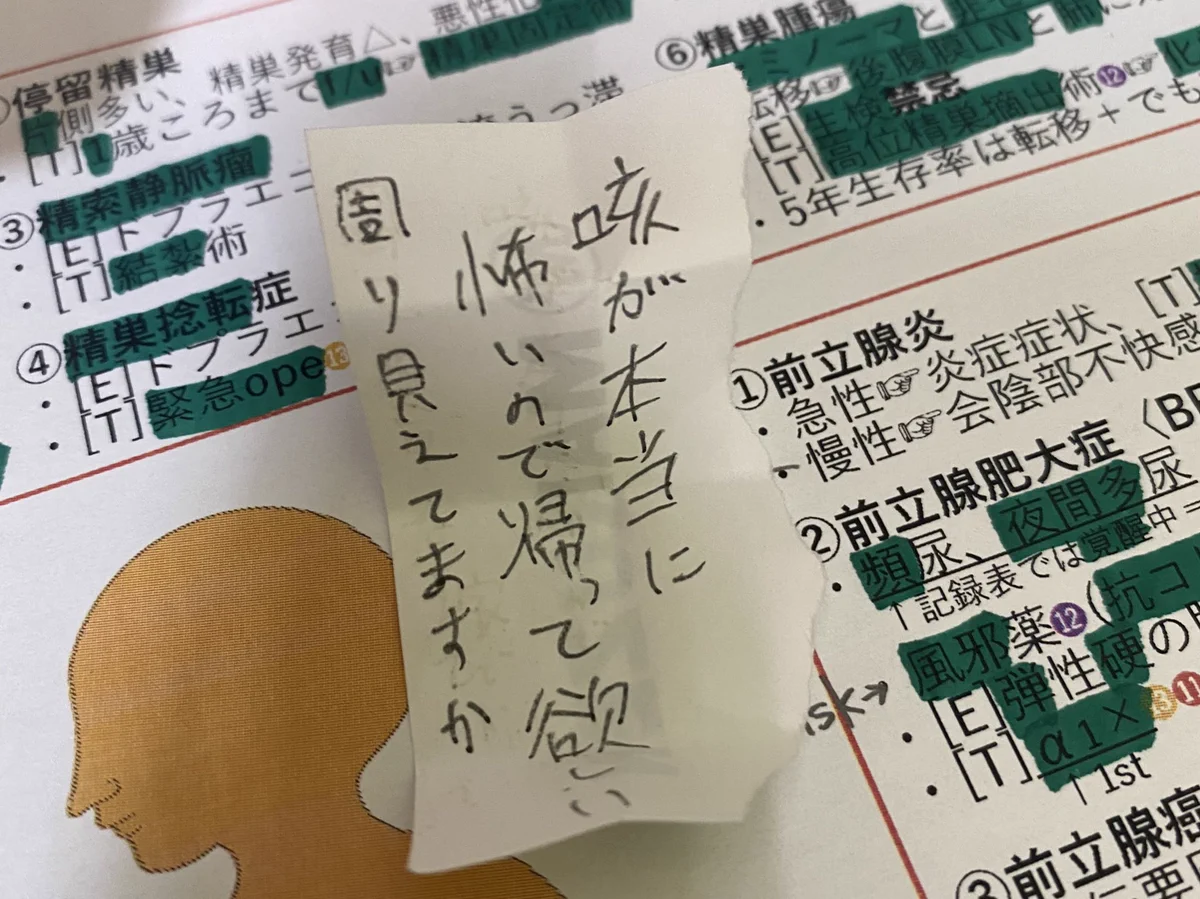 停留精巣
片側多い、精巣発育△、悪性化
・[T]1歳ころまで1/u☞精巣固定術
③精索静脈瘤
・[E]ドプラエコ
・[T]結紮術
④精巣捻転症
・[E]ドプラエ
・[T]緊急ope⑬
咳が本当に
怖いので帰って欲しい
周り見えてますか
⑥精巣腫瘍
セミノーマと
転移☞後腹膜LNと肺に
[E]生検禁忌
[T]高位精巣摘出術⑫☞化
・5年生存率は転移+でも
①前立腺炎
・急性☞炎症症状、[T]
・慢性☞会陰部不快感
②前立腺肥大症〈BP
・頻尿、夜間多尿
↑記録表では覚醒中=
風邪薬⑫(抗コ
・[E]弾性硬の
・[T]α1×⑬⑪
↑1st
isk→
③前立腺癌